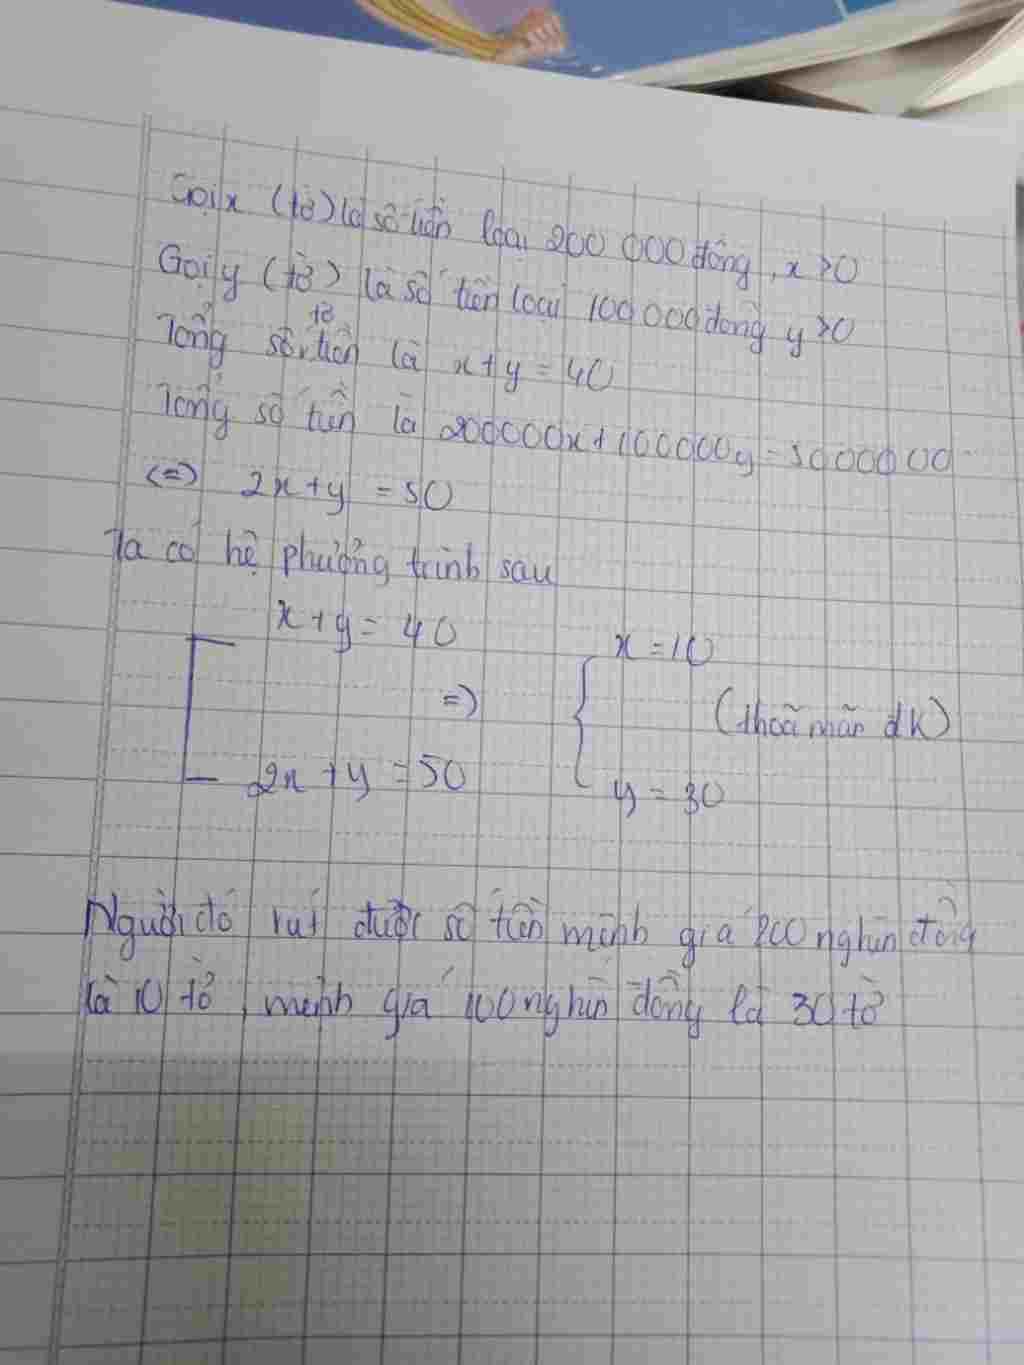 Gọi x (tờ) là số tiền loại 200 000 đồng, x > 0
Gọi y (tờ) là số tiền loại 100 000 đồng y > 0
Tổng số tờ tiền là x + y = 40
Tổng số tiền là 200000x + 100000y = 5000000
(=) 2x + y = 50
Ta có hệ phương trình sau
x + y = 40
x = 10
=)
(thoã mãn đk)
2x + y = 50
y = 30
Người đó rút được số tiền mệnh giá 200 nghìn đồng
là 10 tờ, mệnh giá 100 nghìn đồng là 30 tờ